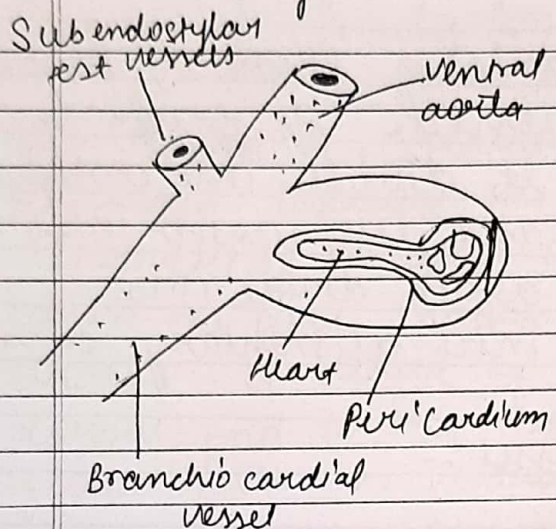 Subendostylar
vessels
ventral
aorta
Heart
Pericardium
Branchio cardial
vessel